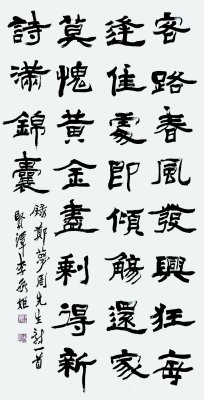 客路春風發興狂每
逢佳處即傾觴還家
莫愧黃金盡剩得新
詩滿錦囊
錄鄭夢周先生詩一首
賢潭李